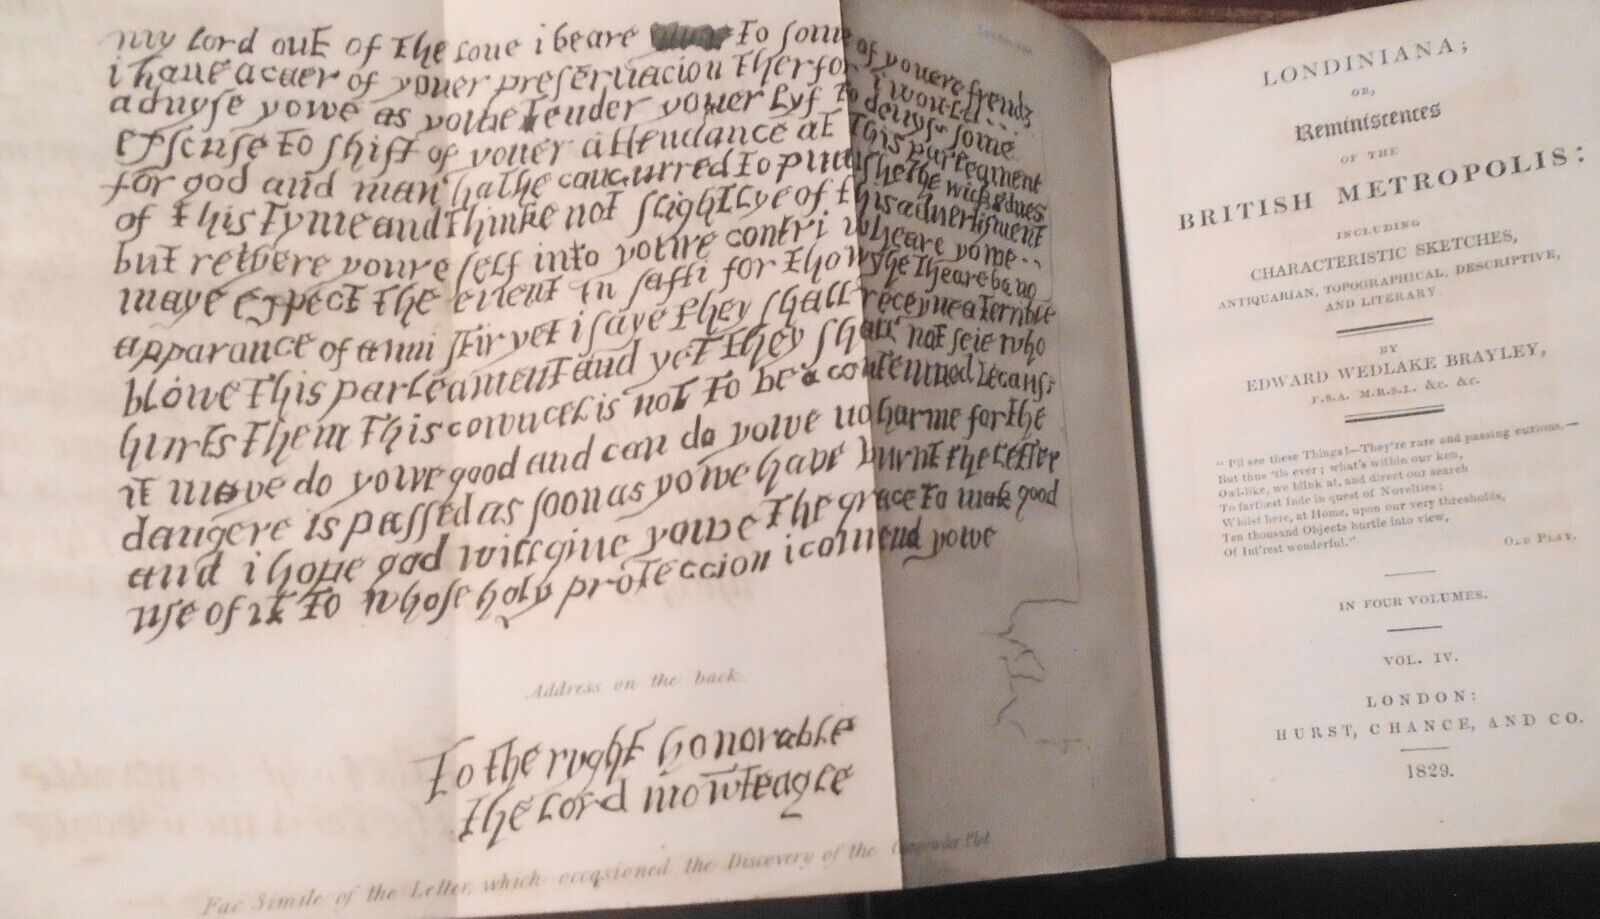 my lord out of the loue i beare to some of youere frends
i haue a caer of youer preseruacion therfor i would
aduyse yowe as yowe tender youer lyf to devys some
excuse to shift of youer attendance at this parleament
for god and man hathe concurred to punishe the wickednes
of this tyme and thinke not slightlye of this advertisment
but retyere youre self into youre contri wheare yowe
maye expect the event in safti for thowghe theare be no
apparance of anni stir yet i saye they shall receyue a terrible
blowe this parleament and yet they shall not seie who
hurts them this cowncel is not to be contemned because
it maye do yowe good and can do yowe no harme for the
dangere is passed as soon as yowe have burnt the letter
and i hope god will giue yowe the grace to mak good
use of it to whose holy proteccion i comend yowe
Address on the back.
To the ryght honorable
the lord mowteagle
Fac Simile of the Letter, which occasioned the Discovery of the Gunpowder Plot
LONDINIANA;
OR,
Reminiscences
OF THE
BRITISH METROPOLIS:
INCLUDING
CHARACTERISTIC SKETCHES,
ANTIQUARIAN, TOPOGRAPHICAL, DESCRIPTIVE,
AND LITERARY.
BY
EDWARD WEDLAKE BRAYLEY,
F.S.A. M.R.S.L. &c. &c.
"I'll see these Things!—They're rare and passing curious.—
But thus 'tis ever; what's within our ken,
Owl-like, we blink at, and direct our search
To farthest Inde in quest of Novelties;
Whilst here, at Home, upon our very thresholds,
Ten thousand Objects hurtle into view,
Of Int'rest wonderful."
OLD PLAY.
IN FOUR VOLUMES.
VOL. IV.
LONDON:
HURST, CHANCE, AND CO.
1829.